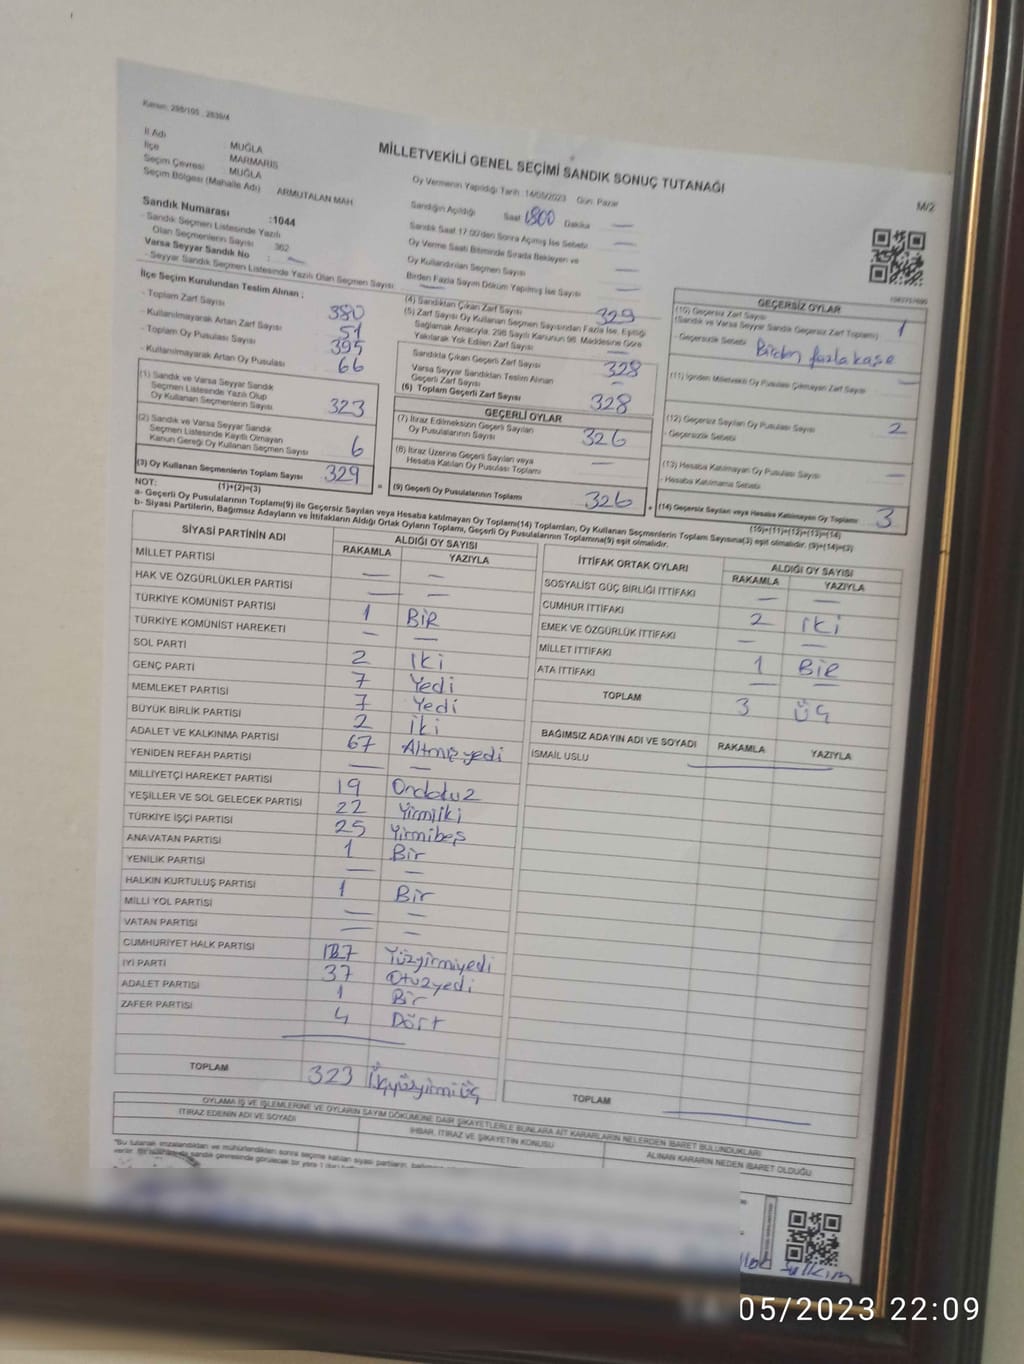 Kanun: 298/105 , 2839/4
MİLLETVEKİLİ GENEL SEÇİMİ SANDIK SONUÇ TUTANAĞI
M/2
İl Adı : MUĞLA
İlçe : MARMARİS
Seçim Çevresi : MUĞLA
Seçim Bölgesi (Mahalle Adı) ARMUTALAN MAH
Sandık Numarası :1044
- Sandık Seçmen Listesinde Yazılı
Olan Seçmenlerin Sayısı 362
Varsa Seyyar Sandık No : —
- Seyyar Sandık Seçmen Listesinde Yazılı Olan Seçmen Sayısı —
Oy Vermenin Yapıldığı Tarih :14/05/2023 Gün: Pazar
Sandığın Açıldığı Saat 1800 Dakika —
Sandık Saat 17:00'den Sonra Açılmış İse Sebebi —
Oy Verme Saati Bitiminde Sırada Bekleyen ve
Oy Kullandırılan Seçmen Sayısı —
Birden Fazla Sayım Döküm Yapılmış İse Sayısı —
İlçe Seçim Kurulundan Teslim Alınan ;
- Toplam Zarf Sayısı 380
- Kullanılmayarak Artan Zarf Sayısı 51
- Toplam Oy Pusulası Sayısı 395
- Kullanılmayarak Artan Oy Pusulası 66
(1) Sandık ve Varsa Seyyar Sandık
Seçmen Listesinde Yazılı Olup
Oy Kullanan Seçmenlerin Sayısı 323
(2) Sandık ve Varsa Seyyar Sandık
Seçmen Listesinde Kayıtlı Olmayan
Kanun Gereği Oy Kullanan Seçmen Sayısı 6
(3) Oy Kullanan Seçmenlerin Toplam Sayısı 329
(1)+(2)=(3)
(4) Sandıktan Çıkan Zarf Sayısı 329
(5) Zarf Sayısı Oy Kullanan Seçmen Sayısından Fazla İse, Eşitliği
Sağlamak Amacıyla, 298 Sayılı Kanunun 98. Maddesine Göre
Yakılarak Yok Edilen Zarf Sayısı —
Sandıkta Çıkan Geçerli Zarf Sayısı 328
Varsa Seyyar Sandıktan Teslim Alınan
Geçerli Zarf Sayısı —
(6) Toplam Geçerli Zarf Sayısı 328
GEÇERLİ OYLAR
(7) İtiraz Edilmeksizin Geçerli Sayılan
Oy Pusulalarının Sayısı 326
(8) İtiraz Üzerine Geçerli Sayılan veya
Hesaba Katılan Oy Pusulası Toplamı —
(9) Geçerli Oy Pusulalarının Toplamı 326
GEÇERSİZ OYLAR
(10) Geçersiz Zarf Sayısı
(Sandık ve Varsa Seyyar Sandık Geçersiz Zarf Toplamı) 1
- Geçersizlik Sebebi Birden fazla kaşe
(11) İçinden Milletvekili Oy Pusulası Çıkmayan Zarf Sayısı —
(12) Geçersiz Sayılan Oy Pusulası Sayısı 2
- Geçersizlik Sebebi
(13) Hesaba Katılmayan Oy Pusulası Sayısı —
- Hesaba Katılmama Sebebi
(14) Geçersiz Sayılan veya Hesaba Katılmayan Oy Toplamı 3
(10)+(11)+(12)+(13)=(14)
NOT:
a- Geçerli Oy Pusulalarının Toplamı(9) ile Geçersiz Sayılan veya Hesaba katılmayan Oy Toplamı(14) Toplamları, Oy Kullanan Seçmenlerin Toplam Sayısına(3) eşit olmalıdır. (9)+(14)=(3)
b- Siyasi Partilerin, Bağımsız Adayların ve İttifakların Aldığı Ortak Oyların Toplamı, Geçerli Oy Pusulalarının Toplamına(9) eşit olmalıdır.
SİYASİ PARTİNİN ADI ALDIĞI OY SAYISI
RAKAMLA YAZIYLA
MİLLET PARTİSİ — —
HAK VE ÖZGÜRLÜKLER PARTİSİ — —
TÜRKİYE KOMÜNİST PARTİSİ 1 BİR
TÜRKİYE KOMÜNİST HAREKETİ — —
SOL PARTİ 2 İki
GENÇ PARTİ 7 Yedi
MEMLEKET PARTİSİ 7 Yedi
BÜYÜK BİRLİK PARTİSİ 2 İki
ADALET VE KALKINMA PARTİSİ 67 Altmışyedi
YENİDEN REFAH PARTİSİ — —
MİLLİYETÇİ HAREKET PARTİSİ 19 Ondokuz
YEŞİLLER VE SOL GELECEK PARTİSİ 22 Yirmiiki
TÜRKİYE İŞÇİ PARTİSİ 25 Yirmibeş
ANAVATAN PARTİSİ 1 Bir
YENİLİK PARTİSİ — —
HALKIN KURTULUŞ PARTİSİ 1 Bir
MİLLİ YOL PARTİSİ — —
VATAN PARTİSİ — —
CUMHURİYET HALK PARTİSİ 127 Yüzyirmiyedi
İYİ PARTİ 37 Otuzyedi
ADALET PARTİSİ 1 Bir
ZAFER PARTİSİ 4 Dört
TOPLAM 323 Üçyüzyirmiüç
İTTİFAK ORTAK OYLARI ALDIĞI OY SAYISI
RAKAMLA YAZIYLA
SOSYALİST GÜÇ BİRLİĞİ İTTİFAKI — —
CUMHUR İTTİFAKI 2 İKİ
EMEK VE ÖZGÜRLÜK İTTİFAKI — —
MİLLET İTTİFAKI 1 BİR
ATA İTTİFAKI — —
TOPLAM 3 ÜÇ
BAĞIMSIZ ADAYIN ADI VE SOYADI RAKAMLA YAZIYLA
İSMAİL USLU
TOPLAM
OYLAMA İŞ VE İŞLEMLERİNE VE OYLARIN SAYIM DÖKÜMÜNE DAİR ŞİKAYETLERLE BUNLARA AİT KARARLARIN NELERDEN İBARET BULUNDUKLARI
İTİRAZ EDENİN ADI VE SOYADI
İHBAR, İTİRAZ VE ŞİKAYETİN KONUSU
ALINAN KARARIN NEDEN İBARET OLDUĞU
05/2023 22:09